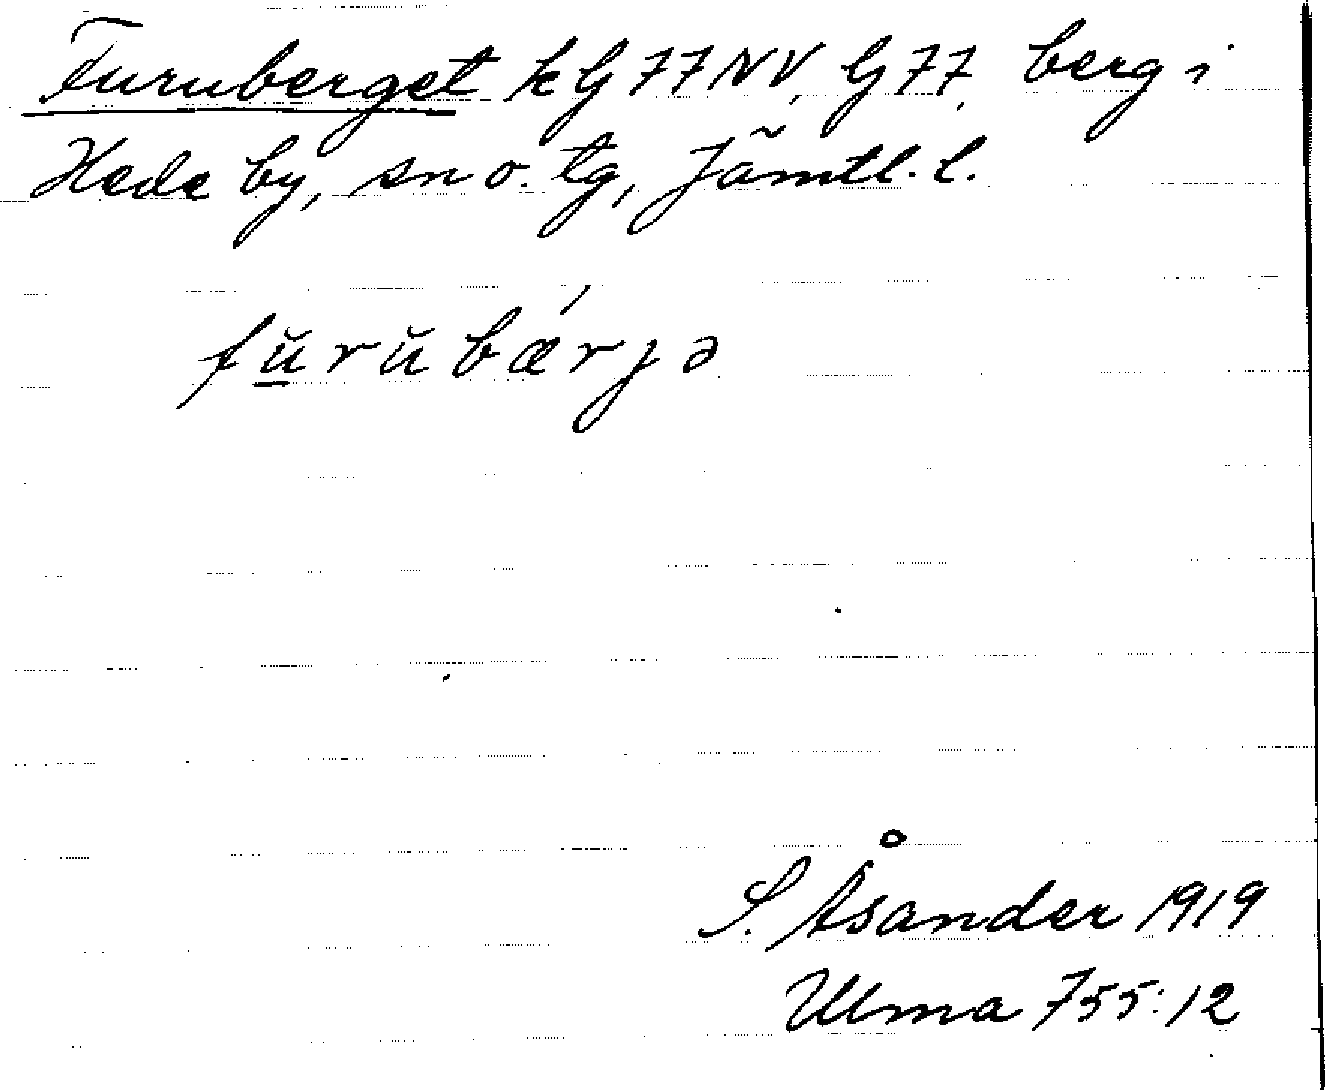 Furuberget kG 77 NV, G 77, berg i
Hede by, sn o. tg, Jämtl. l.
fŭ̱rŭbǽrjə
S. Åsander 1919
Ulma 755:12